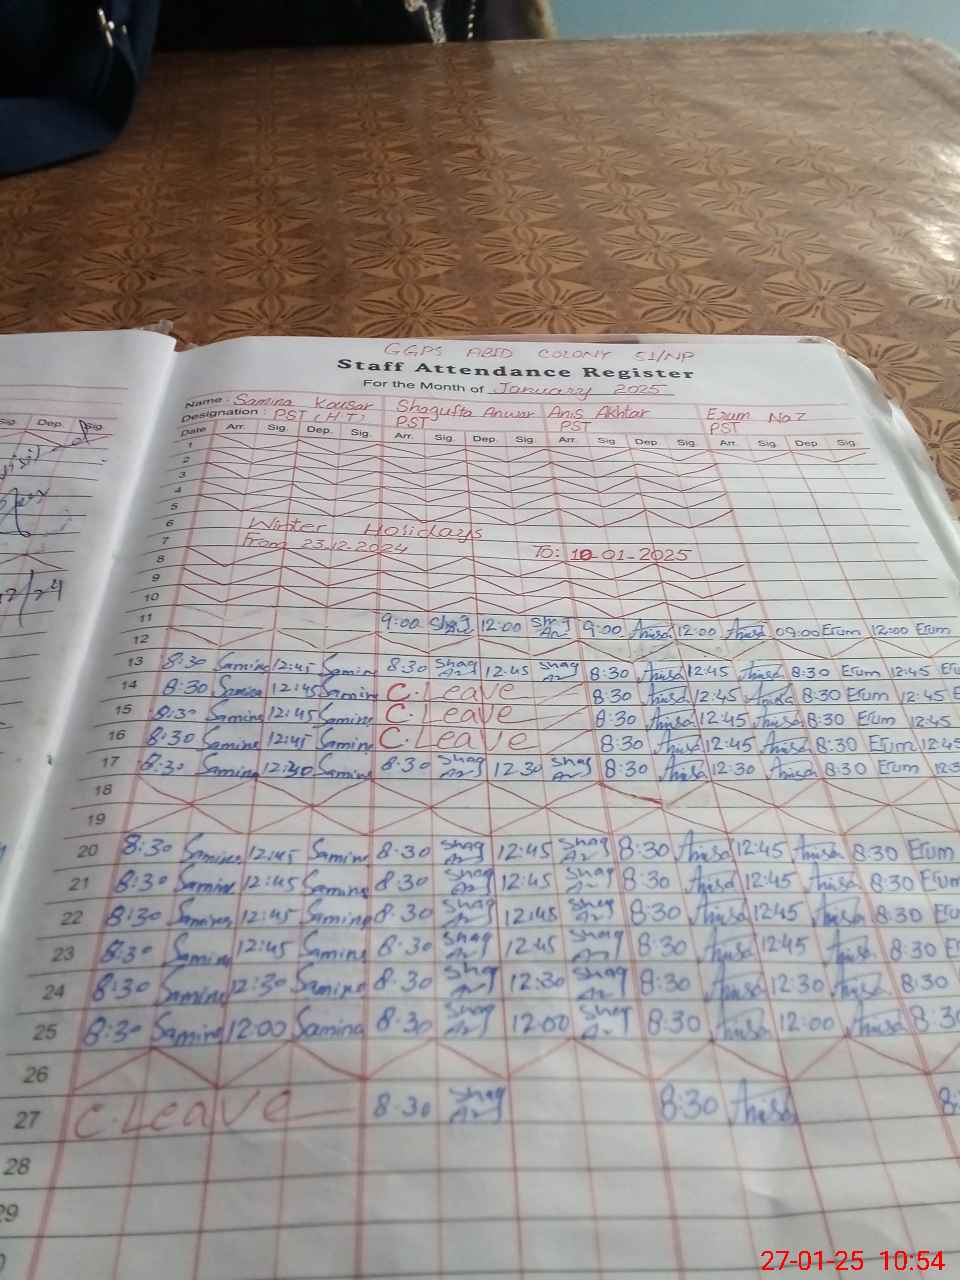 GGPS ABID COLONY 51/NP
Staff Attendance Register
For the Month of January 2025
Name: Samina Kousar Shagufta Anwar Anis Akhtar Erum Naz
Designation: PST (H.T) PST PST PST
Date Arr. Sig. Dep. Sig. Arr. Sig. Dep. Sig. Arr. Sig Dep. Sig. Arr. Sig. Dep. Sig.
Sig Dep. Sig.
1
2
3
4
5
6 Winter Holidays
7 From 23.12-2024 To: 10-01-2025
8
9
10
11 9:00 Shag Ar 12:00 Shag Ar 9:00 Anisa 12:00 Anisa 09:00 Erum 12:00 Erum
12
13 8:30 Samina 12:45 Samina 8:30 Shag Ar 12:45 Shag 8:30 Anisa 12:45 Anisa 8:30 Erum 12:45 Eru
14 8:30 Samina 12:45 Samina C.Leave 8:30 Anisa 12:45 Anisa 8:30 Erum 12:45 E
15 8:30 Samina 12:45 Samina C.Leave 8:30 Anisa 12:45 Anisa 8:30 Erum 12:45
16 8:30 Samina 12:45 Samina C.Leave 8:30 Anisa 12:45 Anisa 8:30 Erum 12:45
17 8:30 Samina 12:30 Samina 8:30 Shag Ar 12:30 Shag Ar 8:30 Anisa 12:30 Anisa 8:30 Erum 12:3
18
19
20 8:30 Samina 12:45 Samina 8:30 Shag Ar 12:45 Shag Ar 8:30 Anisa 12:45 Anisa 8:30 Erum
21 8:30 Samina 12:45 Samina 8:30 Shag Ar 12:45 Shag Ar 8:30 Anisa 12:45 Anisa 8:30 Erum
22 8:30 Samina 12:45 Samina 8:30 Shag Ar 12:45 Shag Ar 8:30 Anisa 12:45 Anisa 8:30 Eru
23 8:30 Samina 12:45 Samina 8:30 Shag Ar 12:45 Shag Ar 8:30 Anisa 12:45 Anisa 8:30 E
24 8:30 Samina 12:30 Samina 8:30 Shag Ar 12:30 Shag Ar 8:30 Anisa 12:30 Anisa 8:30
25 8:30 Samina 12:00 Samina 8:30 Shag Ar 12:00 Shag Ar 8:30 Anisa 12:00 Anisa 8:30
26
27 C.Leave 8:30 Shag Ar 8:30 Anisa 8:
28
29
27-01-25 10:54